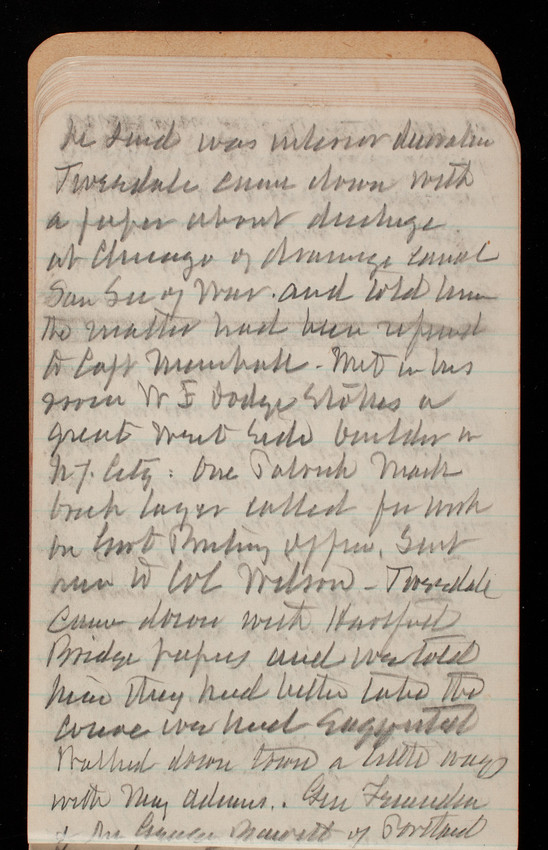 he said was interior decoration
Tweedale came down with
a paper about discharge
at Chicago of drainage canal
Saw Sec of War. and told him
the matter had been referred
to Capt Marshall - Met in his
room W E Dodge Stokes a
great West Side builder in
N.Y. City: One Patrick Mack
brick layer called for work
on Govt Printing Office. Sent
him to Col Wilson - Tweedale
came down with Hartford
Bridge papers and we told
him they had better take the
course we had suggested
Walked down town a little ways
with Maj Adams.. Gen
& Mr George of Portland